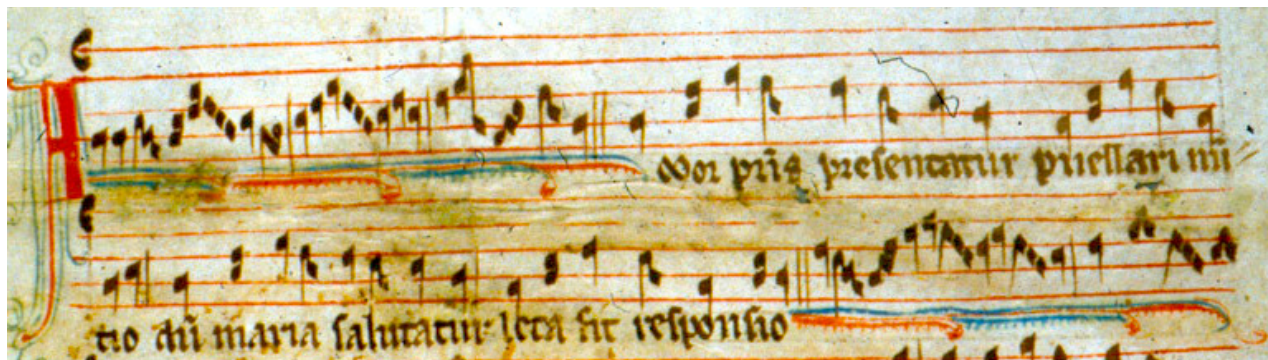 Amor pr̄is presentatur puellari nū
tio dū maria salutatur leta fit responsio